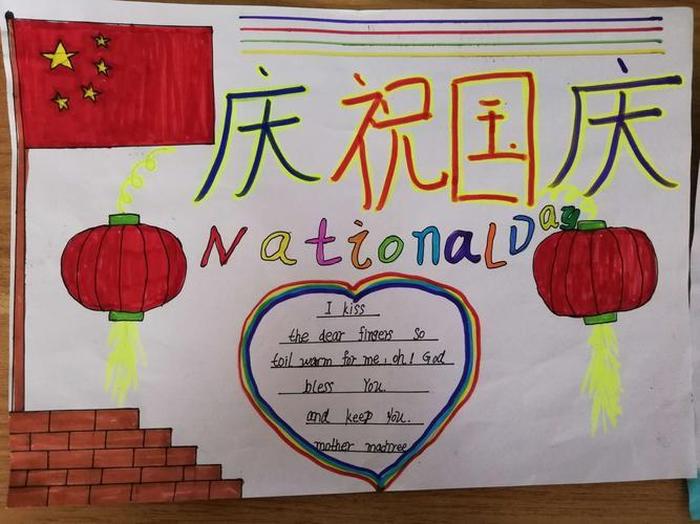 庆祝国庆
National Day
I kiss
the dear fingers so
toil warm for me, oh! God
bless You.
and keep You.
mother madree